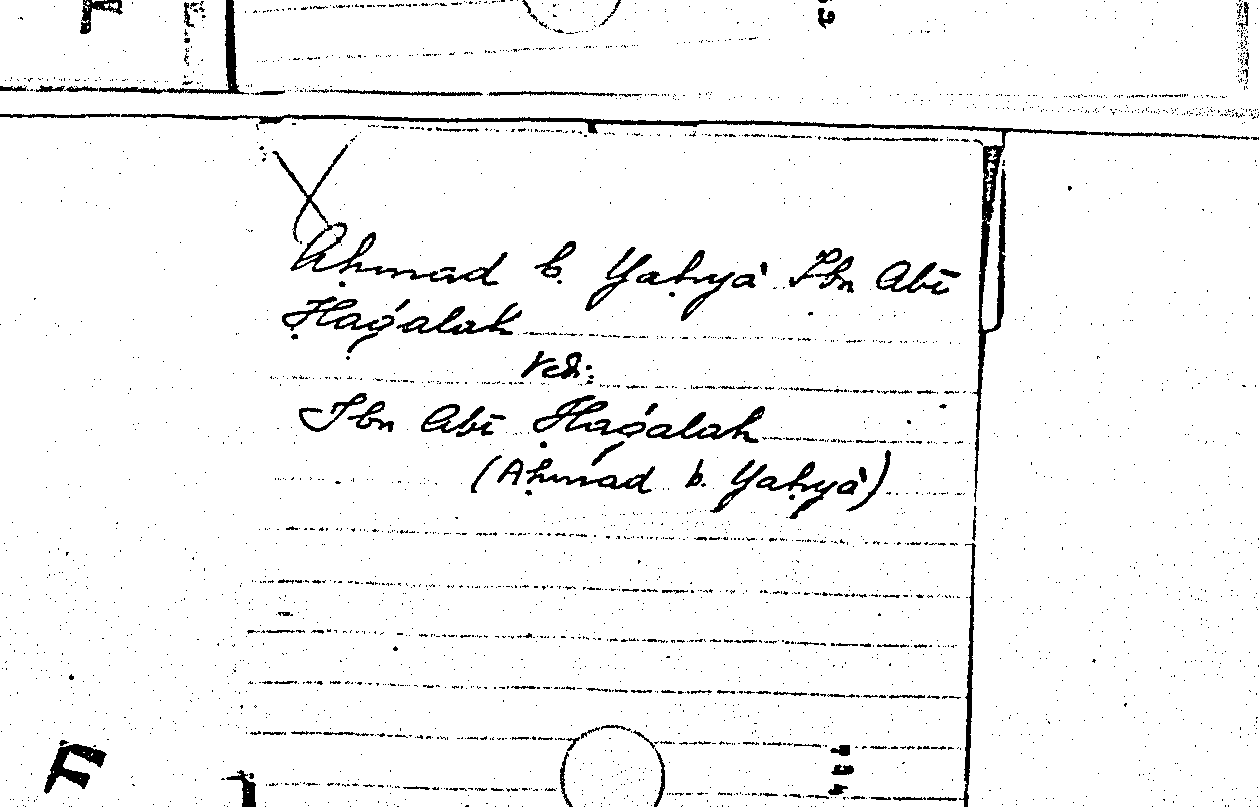 Aḥmad b. Yaḥyà Ibn Abī
Ḥaǵalah
ved:
Ibn Abī Ḥaǵalah
(Aḥmad b. Yaḥyà)
F